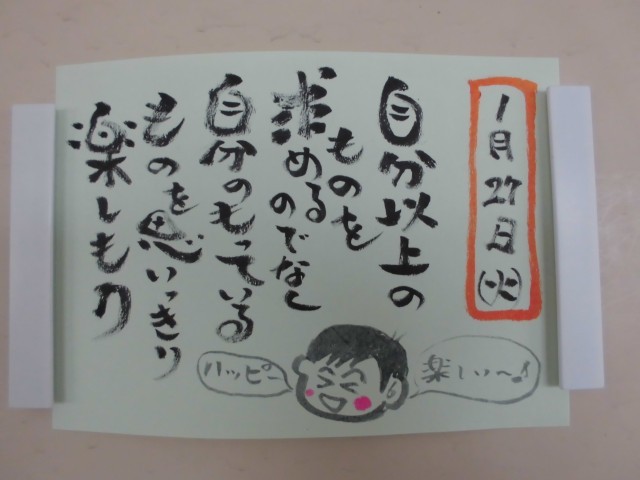 1月27日(火)
自分以上の
ものを
求めるのでなし
自分のもっている
ものを思いっきり
楽しもう
ハッピー
楽しい〜♪